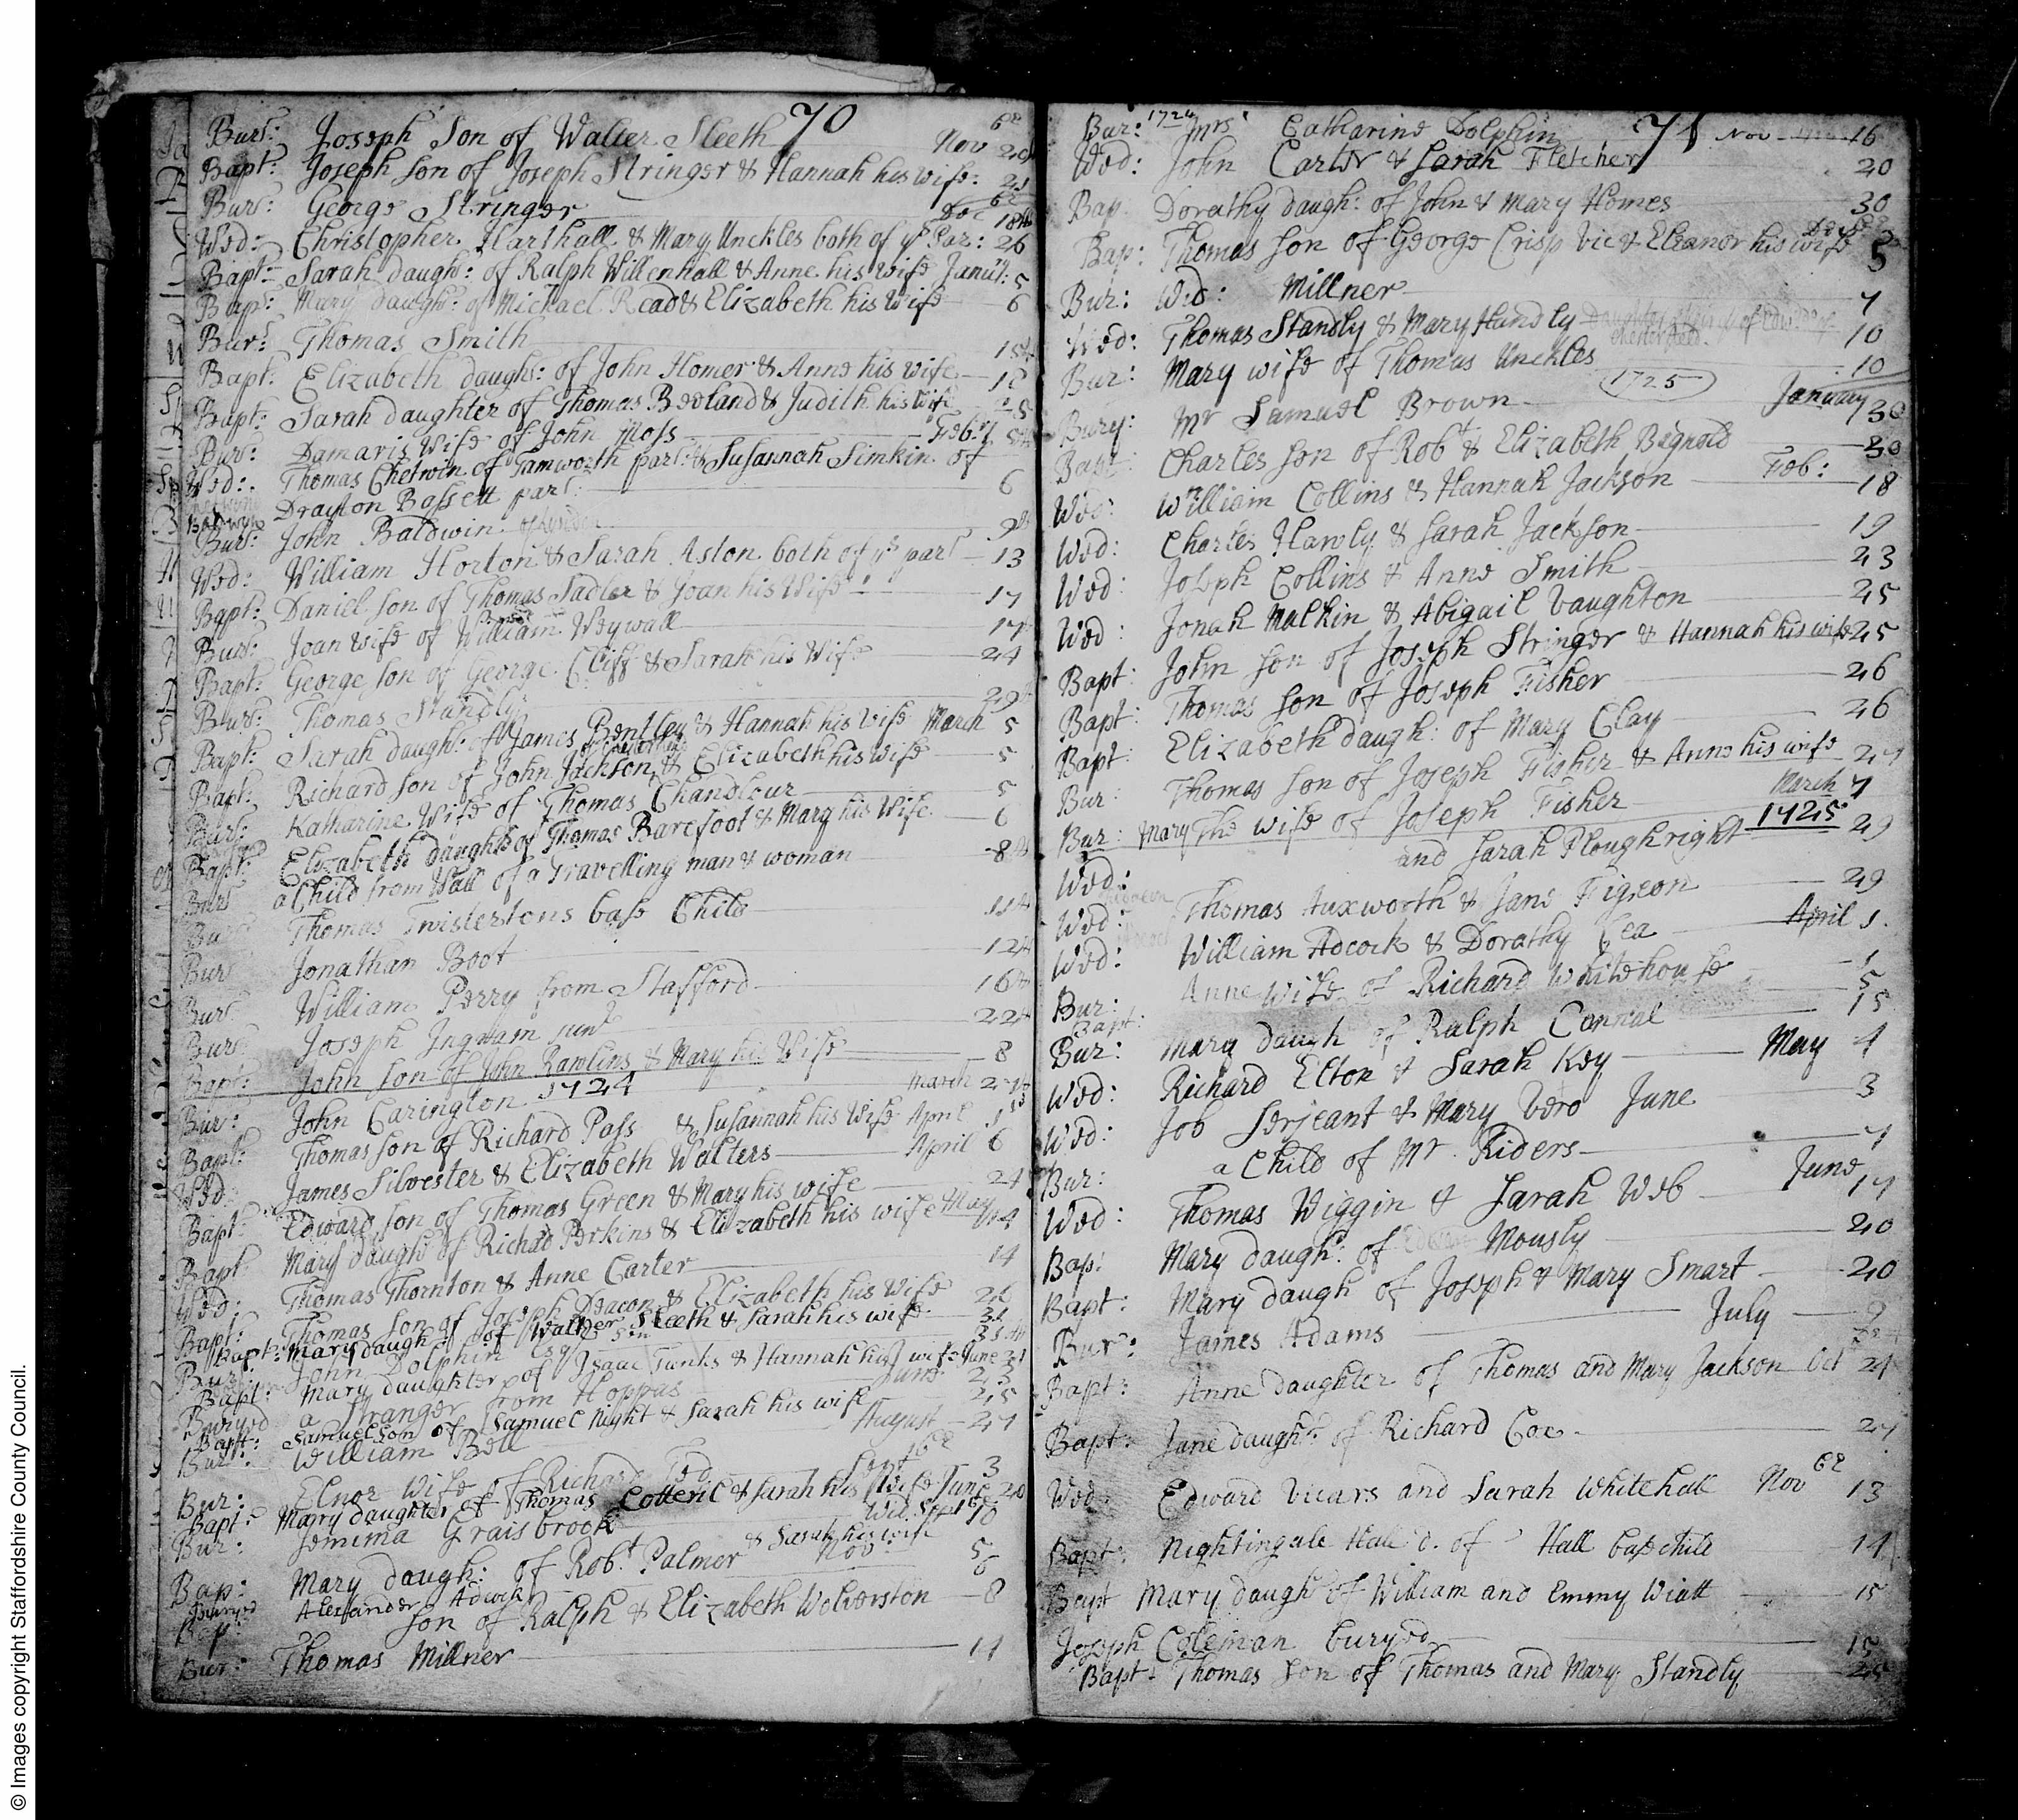 70
Bur: Joseph Son of Walter Sleeth Nov 20
Bapt: Joseph Son of Joseph Stringer & Hannah his wife: 21
Bur: George Stringer Dec 18th
Wed: Christopher Harthall & Mary Unckles both of ys Par: 26
Bapt: Sarah daugh: of Ralph Willenhall & Anne his Wife Janu: 5
Bap: Mary daugh: of Michael Read & Elizabeth his Wife 6
Bur: Thomas Smith
Bapt: Elizabeth daugh: of John Homer & Anne his Wife
Bapt: Sarah daughter of Thomas Beoland & Judith his Wife
Bur: Damaris Wife of John Moss Feb: 5th
Wed: Thomas Chetwin of Tamworth par: & Susannah Simkin of
Drayton Bassett par: 6
Bur: John Baldwin 9th
Wed: William Horton & Sarah Aston both of ys par 13
Bapt: Daniel son of Thomas Sadler & Joan his Wife 17
Bur: Joan Wife of William Weywall 17
Bapt: George son of George Cliff & Sarah his Wife 24
Bur: Thomas Standly 29
Bapt: Sarah daugh: of James Bentley & Hannah his Wife March 5
Bapt: Richard son of John Jackson & Elizabeth his Wife 5
Bur: Katharine Wife of Thomas Chandlour 5
Bapt: Elizabeth daught of Thomas Barefoot & Mary his Wife 6
Bur a Child from Wall of a Travelling man & woman 8th
Bur Thomas Twistertons base Child 11th
Bur Jonathan Boot 12th
Bur William Perry from Stafford 16th
Bur Joseph Ingram junr 22th
Bapt: John son of John Rawlins & Mary his Wife 8
Bur: John Carington 1724 March 27th
Bapt: Thomas son of Richard Pass & Susannah his Wife April 1st
Wed: James Silvester & Elizabeth Walters April 6
Bapt: Edward son of Thomas Green & Mary his wife 24
Bapt: Mary daugh: of Richad Perkins & Elizabeth his wife May 14
Wed: Thomas Thornton & Anne Carter 14
Bapt: Thomas Son of Joseph Deacon & Elizabeth his Wife 26
Bapt: Mary daugh: of Walter Sleeth & Sarah his wife 31
Bur: John Dolphin Esqr Senr 31th
Bapt: Mary daughter of Isaac Tunks & Hannah his wife June 21
Buryed a Stranger from Hoppas June 23
Bapt: Samuel Son of Samuel Night & Sarah his wife 25
Bur: William Bell August 27
Bur: Elnor Wife of Richard 3
Bapt: Mary daughter of Thomas Cotteril & Sarah his Wife June 20
Bur: Jemima Graisbrook 10
Bap: Mary daugh: of Robt Palmer & Sarah his wife Nov: 5
Buryed Alexander Adwick 6
Bap: son of Ralph & Elizabeth Wolverston 8
Bur: Thomas Millner 11
71
Bur: 1724 Mrs Catharine Dolphin Nov 16
Wed: John Carter & Sarah Fletcher 20
Bap. Dorathy daugh: of John & Mary Homes 30
Bap: Thomas Son of George Crisp Vic & Eleanor his wife 5
Bur: Wid: Millner 7
Wed: Thomas Standly & Mary Handly 10
Bur: Mary wife of Thomas Unckles 10
1725
Bury: Mr Samuel Brown January 30
Bapt: Charles son of Robt & Elizabeth Bagnold 30
Wed: William Collins & Hannah Jackson Feb: 18
Wed: Charles Hawly & Sarah Jackson 19
Wed: Joseph Collins & Anne Smith 23
Wed: Jonah Malkin & Abigail Vaughton 25
Bapt: John son of Joseph Stringer & Hannah his wife 25
Bapt: Thomas son of Joseph Fisher 26
Bapt: Elizabeth daugh: of Mary Clay 26
Bur: Thomas son of Joseph Fisher & Anne his wife 27
Bur: Mary The wife of Joseph Fisher March 7
Wed: and Sarah Ploughright 1725 29
Wed: Thomas Auxworth & Jane Figeon 29
Wed: William Adcock & Dorathy Lea April 1.
Bur: Anne Wife of Richard Whitehouse 1
Bapt: 5
Bur: Mary daugh of Ralph Connal 15
Wed: Richard Elton & Sarah Key May 4
Wed: Job Serjeant & Mary Vero June 3
Bur: a Child of Mr. Riders 7
Wed: Thomas Wiggin & Sarah Web June 17
Bap: Mary daugh: of Mously 20
Bapt: Mary daugh of Joseph & Mary Smart 20
Bur: James Adams July 9
Bapt: Anne daughter of Thomas and Mary Jackson Oct 24
Bapt: Jane daugh: of Richard Cox 27
Wed: Edward Vicars and Sarah Whitehall Nov 13
Bapt: Nightingale Hall d. of Hall base child 14
Bapt Mary daugh of William and Emmy Wiatt 15
Joseph Coleman buryed 15
Bapt Thomas son of Thomas and Mary Standly 25
© Images copyright Staffordshire County Council.